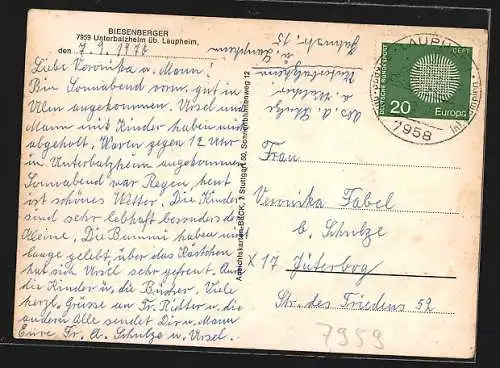 BIESENBERGER
7959 Unterbalzheim üb. Laupheim,
den 7.9.1970
Liebe Veronika u. Mann!
Bin Sonnabend vorm. gut in
Ulm angekommen. Ursel und
Mann mit Kinder haben mich
abgeholt. Waren gegen 12 Uhr
in Unterbalzheim angekommen
Sonnabend war Regen, heut
ist schönes Wetter. Die Kinder
sind sehr lebhaft besonders der
Kleine. Die Bammi haben nicht
lange gelebt, über das Kästchen
hat sich Ursel sehr gefreut. Auch
die Kinder u. die Bücher. Viele
herzl. Grüsse an Fr. Richter u. die
andern Alle sendet Dir u. Mann
Eure Fr. A. Schulze u. Ursel.
Ansichtskarten-BECK, 7 Stuttgart 50, Sonnenblumenweg 12
Abs. A. Schulze
Unterbalzheim
ü. Laupheim
Jahnstr. 15
DEUTSCHE BUNDESPOST
CEPT
20
Europa
LAUPH
7958
Frau
Veronika Fabel
b. Schulze
X 17 Jüterbog
Str. des Friedens 52
7959